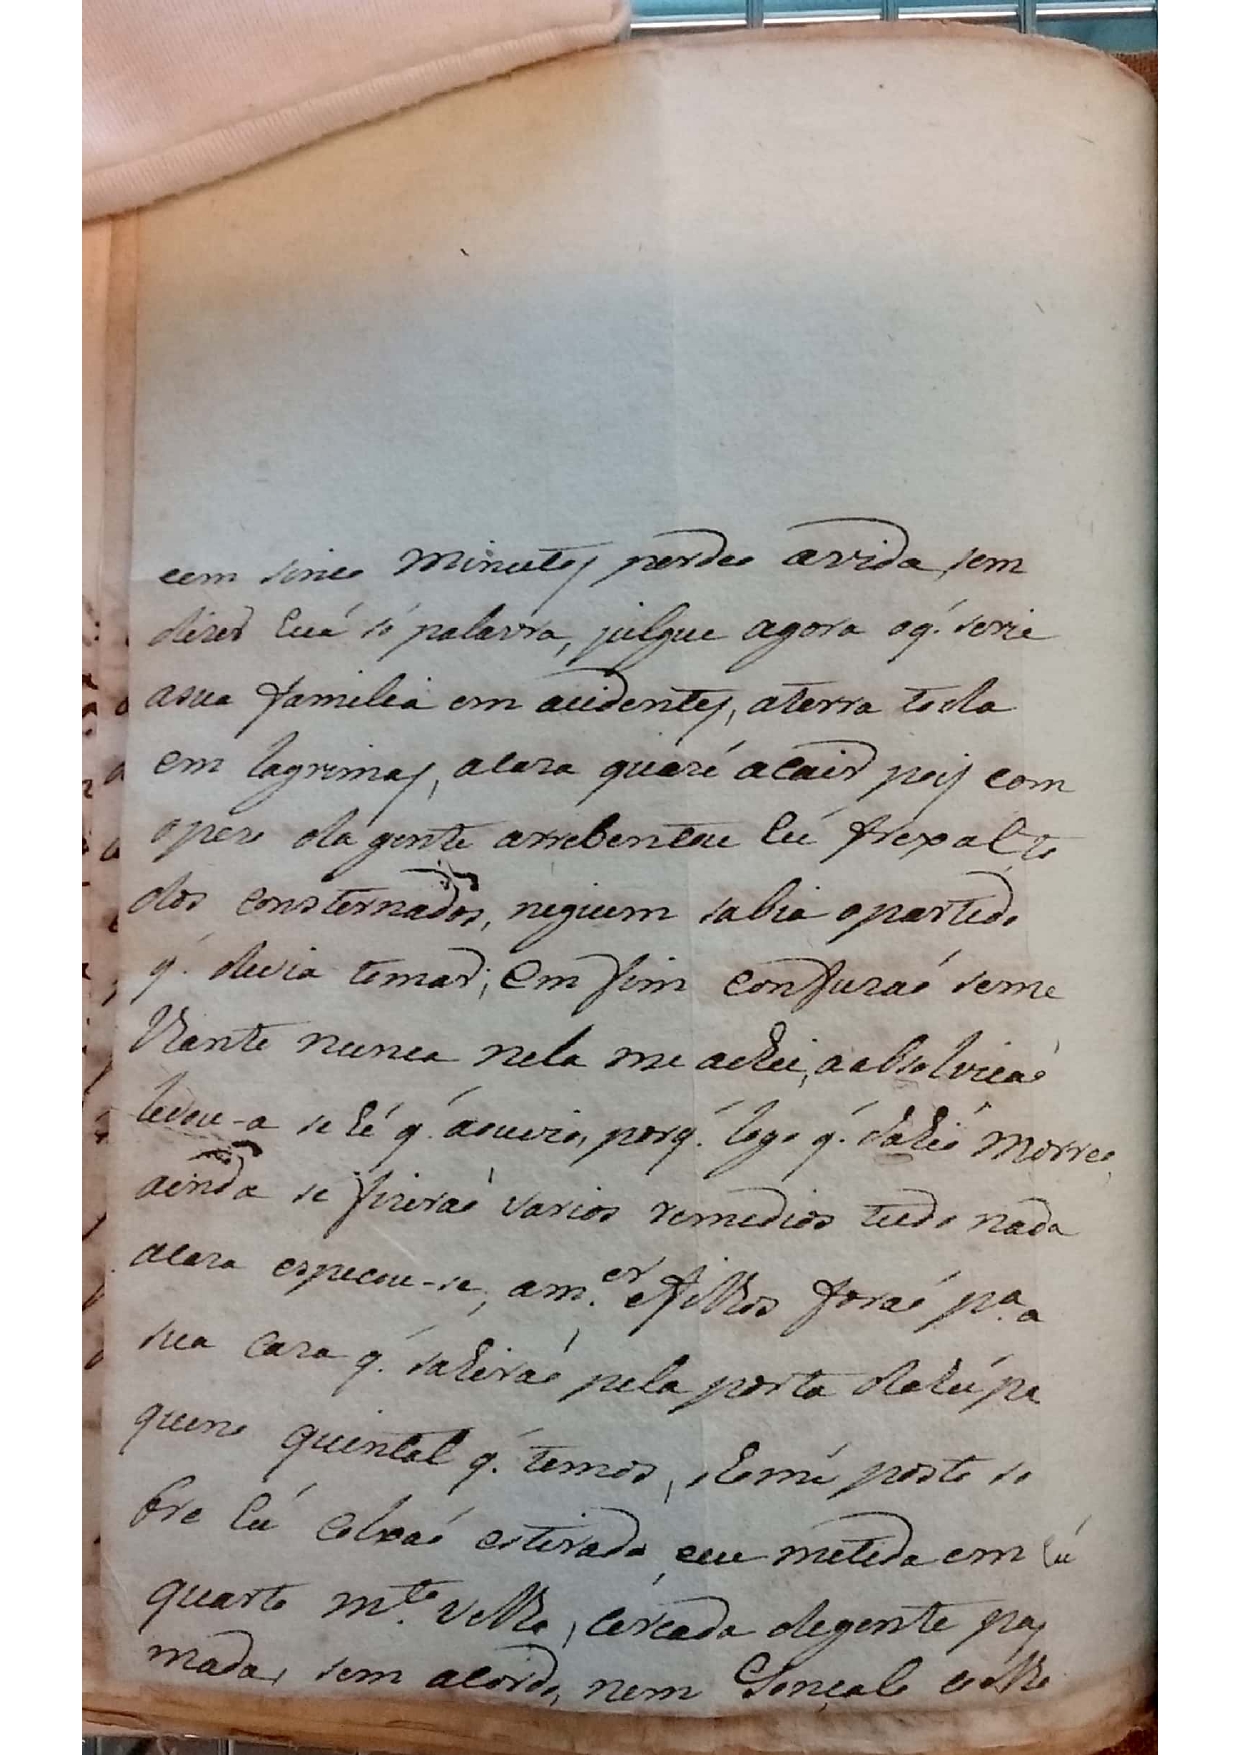 eem sinco minutos perdeo avida, sem
dizer huá só palavra, julgue agora oq. serie
asua familia em acidentes, aterra toda
em lagrimas, acaza quazé acair pois com
opezo da gente arrebentou hú frexal to
dos consternados, neguem sabia opartido
q. devia tomar; em fim confuzaó seme
lhante nunca nela me achei, aabsolvicaó
levou-a se hé q. aouvio, porq. logo q. cahio morreo,
ainda se fizeraó varios remedios tudo nada
acaza espicou-se, am.er e filhos foraó p.a a
sua caza q. sahiraó pela porta dehú pe
queno quintal q. temos, ehomé posto so
bre hú colxaó estirado, eeu metida em hú
quarto m.to velho, cercada degente pas
mada, sem acordo, nem Gonçalo